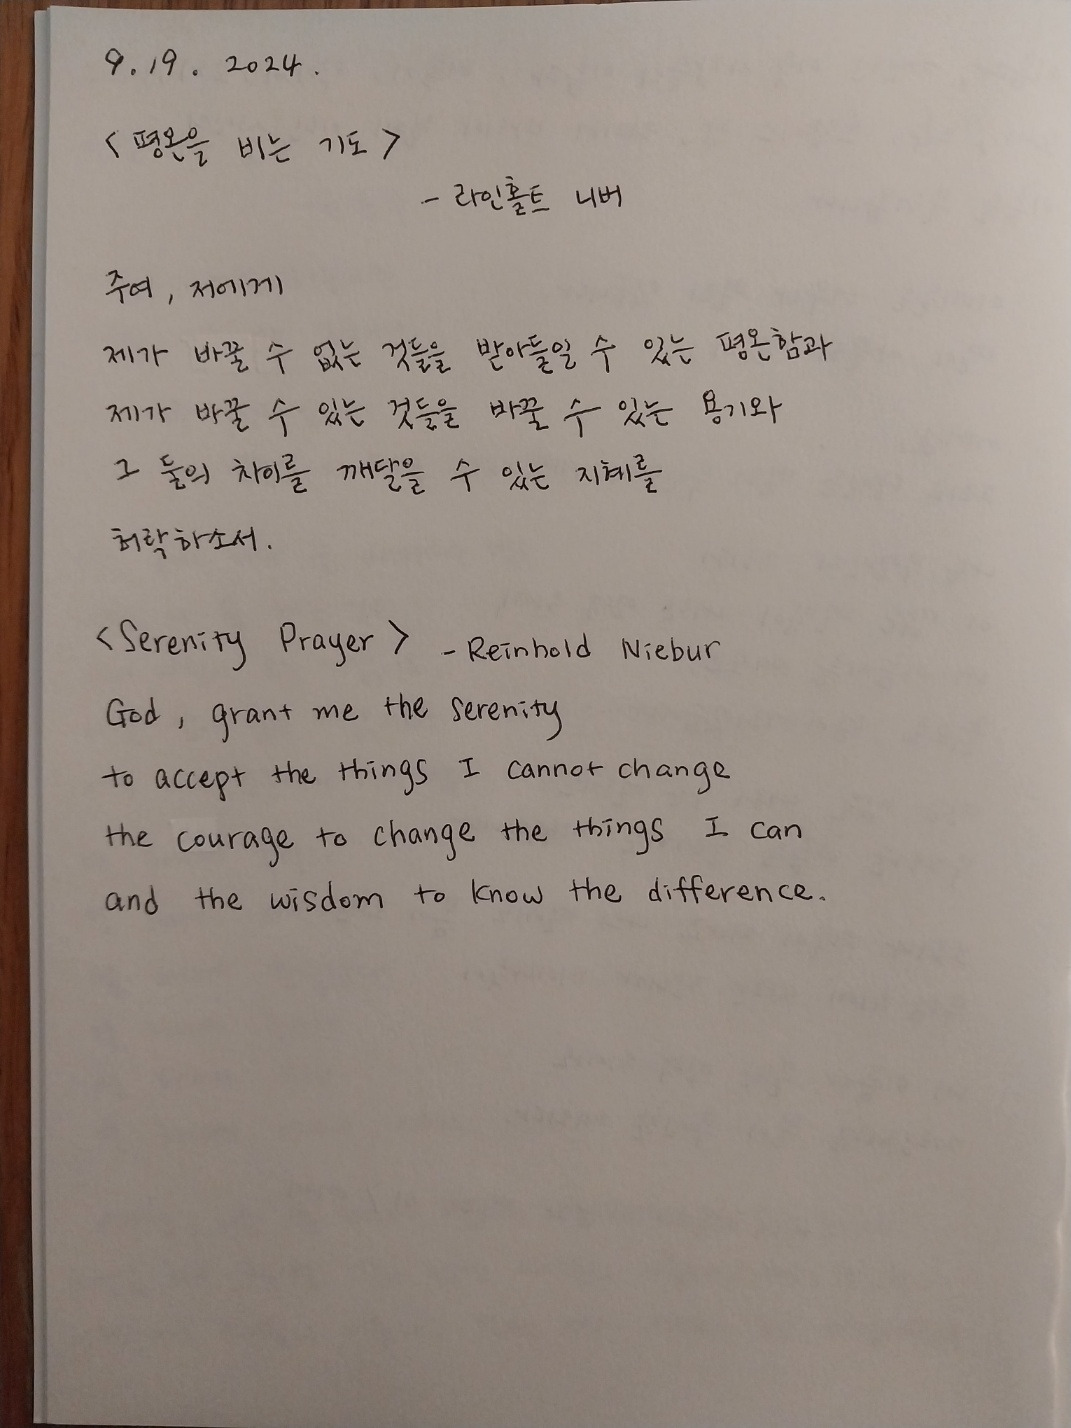 9.19. 2024.
<평온을 비는 기도>
- 라인홀트 니버
주여, 저에게
제가 바꿀 수 없는 것들을 받아들일 수 있는 평온함과
제가 바꿀 수 있는 것들을 바꿀 수 있는 용기와
그 둘의 차이를 깨달을 수 있는 지혜를
허락하소서.
<Serenity Prayer> - Reinhold Niebur
God, grant me the serenity
to accept the things I cannot change
the courage to change the things I can
and the wisdom to know the difference.